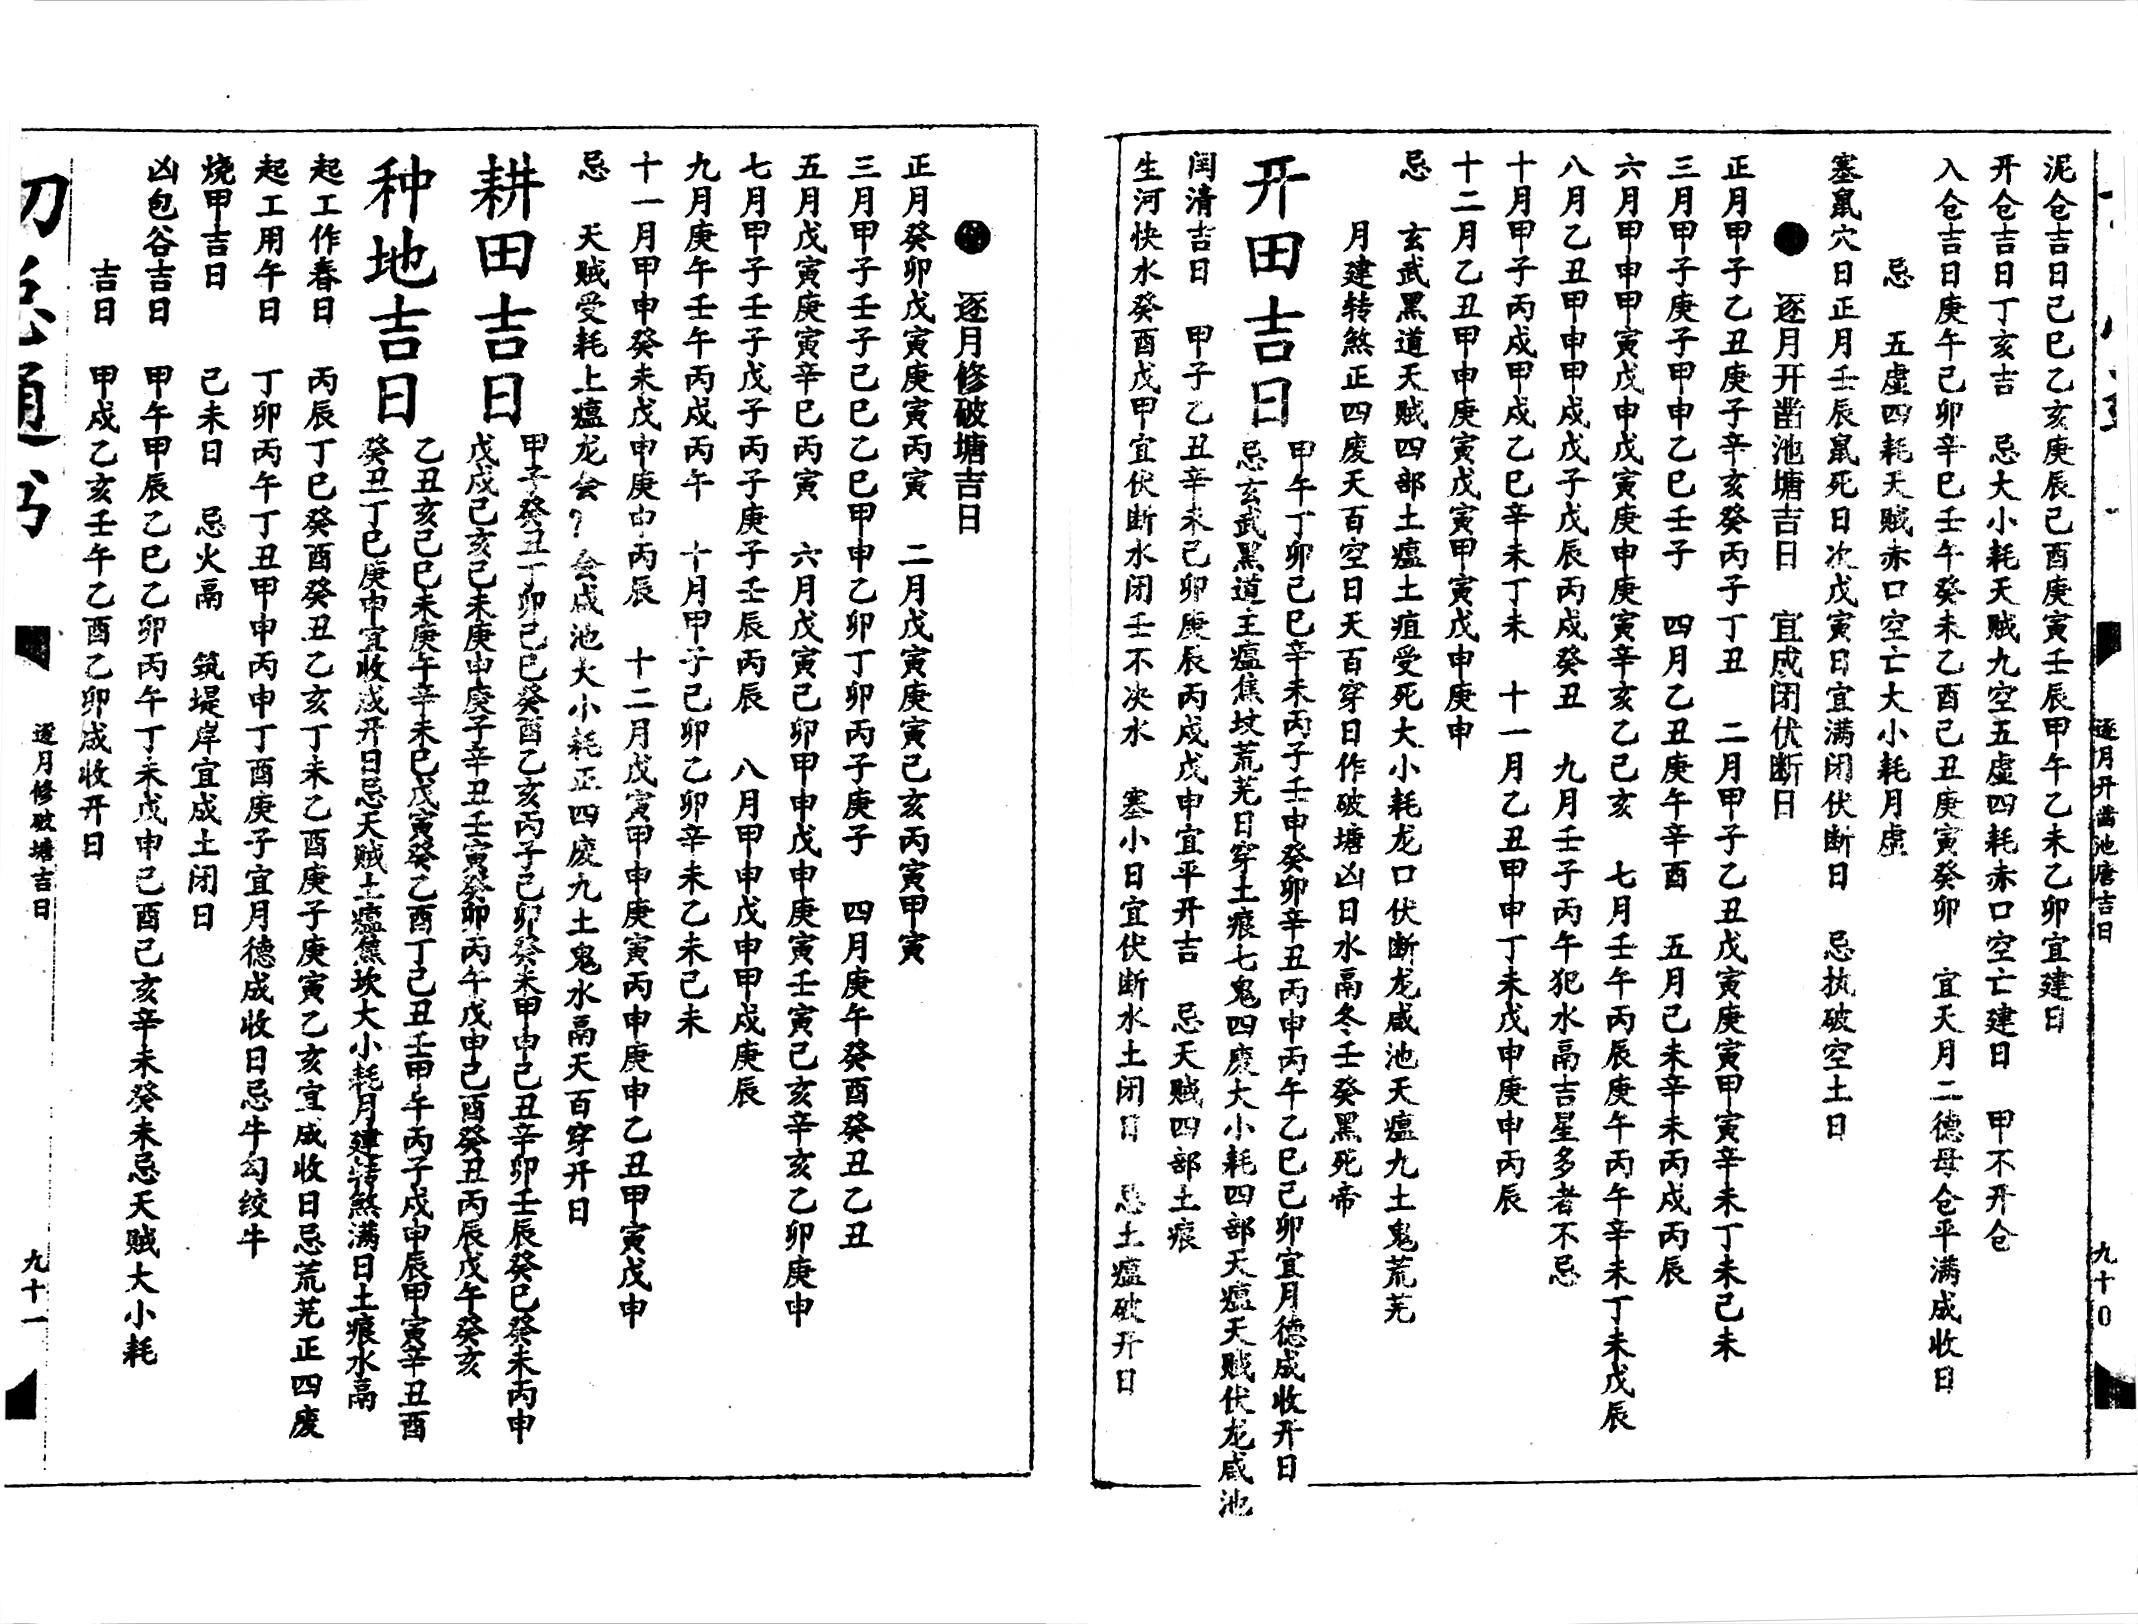 泥仓吉日己巳乙亥庚辰己酉庚寅壬辰甲午乙未乙卯宜建日
开仓吉日丁亥吉 忌大小耗天贼九空五虚四耗赤口空亡建日 甲不开仓
入仓吉日庚午己卯辛巳壬午癸未乙酉己丑庚寅癸卯 宜天月二德母仓平满成收日
忌 五虚四耗天贼赤口空亡大小耗月虚
塞鼠穴日正月壬辰鼠死日次戊寅日宜满闭伏断日 忌执破空土日
逐月开凿池塘吉日 宜成闭伏断日
正月甲子乙丑庚子辛亥癸丙子丁丑 二月甲子乙丑戊寅庚寅甲寅辛未丁未己未
三月甲子庚子甲申乙巳壬子 四月乙丑庚午辛酉 五月己未辛未丙戍丙辰
六月甲申甲寅戊申戊寅庚申庚寅辛亥乙己亥 七月壬午丙辰庚午丙午辛未丁未戊辰
八月乙丑甲申甲戍戊子戊辰丙戍癸丑 九月壬子丙午犯水鬲吉星多者不忌
十月甲子丙戍甲戍乙巳辛未丁未 十一月乙丑甲申丁未戊申庚申丙辰
十二月乙丑甲申庚寅戊寅甲寅戊申庚申
忌 玄武黑道天贼四部土瘟土疽受死大小耗龙口伏断龙咸池天瘟九土鬼荒芜
月建转煞正四废天百空日天百穿日作破塘凶日水鬲冬壬癸黑死帝
开田吉日
甲午丁卯己巳辛未丙子壬申癸卯辛丑丙申丙午乙巳己卯宜月德成收开日
忌玄武黑道土瘟焦坟荒芜日穿土痕七鬼四废大小耗四部天瘟天贼伏龙咸池
闰清吉日 甲子乙丑辛未己卯庚辰丙戍戊申宜平开吉 忌天贼四部土痕
生河快水癸酉戊甲宜伏断水闭壬不决水 塞小日宜伏断水土闭日 忌土瘟破开日
逐月开凿池唐吉日
九十0
逐月修破塘吉日
正月癸卯戊寅庚寅丙寅 二月戊寅庚寅己亥丙寅甲寅
三月甲子壬子己巳乙巳甲申乙卯丁卯丙子庚子 四月庚午癸酉癸丑乙丑
五月戊寅庚寅辛巳丙寅 六月戊寅己卯甲申戊申庚寅壬寅己亥辛亥乙卯庚申
七月甲子壬子戊子丙子庚子壬辰丙辰 八月甲申戊申甲戍庚辰
九月庚午壬午丙戍丙午 十月甲子己卯乙卯辛未乙未己未
十一月甲申癸未戊申庚申丙辰 十二月戊寅甲申庚寅丙申庚申乙丑甲寅戊申
忌 天贼受耗上瘟龙会?会咸池大小耗正四废九土鬼水鬲天百穿开日
耕田吉日
甲子癸丑丁卯己巳癸酉乙亥丙子己卯癸未甲申己丑辛卯壬辰癸巳癸未丙申
戊戍己亥己未庚申庚子辛丑壬寅癸卯丙午戊申己酉癸丑丙辰戊午癸亥
种地吉日
乙丑亥己巳未庚午辛未巳戊寅癸乙酉丁己丑壬甲午丙子戍申辰甲寅辛丑酉
癸丑丁巳庚申宜收成开日忌天贼土瘟焦坎大小耗月建转煞满日土痕水鬲
起工作春日 丙辰丁巳癸酉癸丑乙亥丁未乙酉庚子庚寅乙亥宜成收日忌荒芜正四废
起工用午日 丁卯丙午丁丑甲申丙申丁酉庚子宜月德成收日忌牛勾绞牛
烧甲吉日 己未日 忌火鬲 筑堤岸宜成土闭日
凶包谷吉日 甲午甲辰乙巳乙卯丙午丁未戊申己酉己亥辛未癸未忌天贼大小耗
吉日 甲戍乙亥壬午乙酉乙卯成收开日
逐月修破塘吉日
九十一